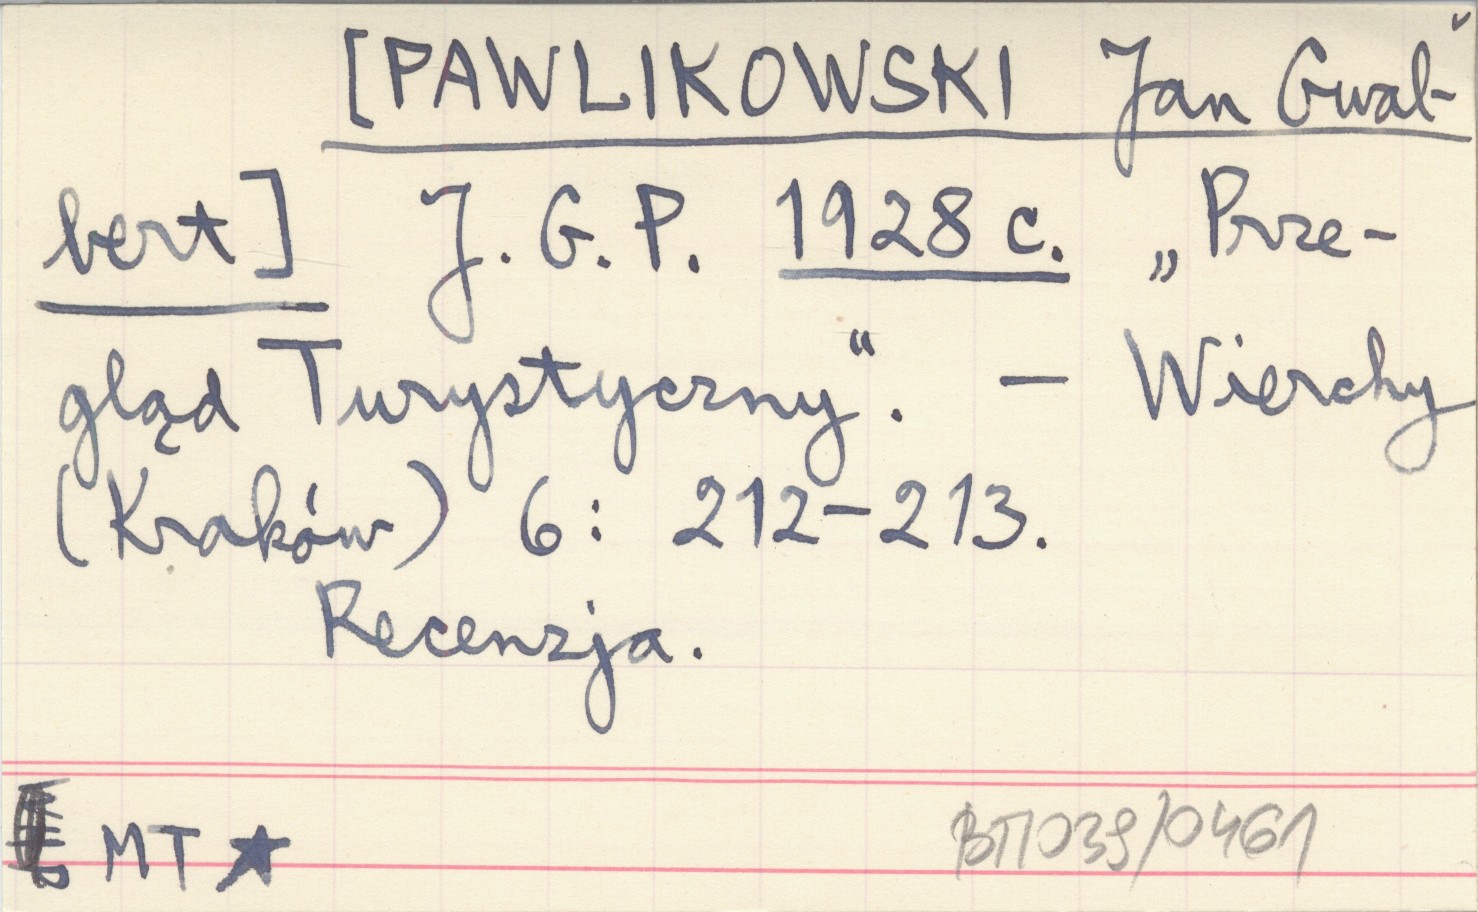 [PAWLIKOWSKI Jan Gwal-
bert] J. G. P. 1928 c. „Prze-
gląd Turystyczny“. — Wierchy
(Kraków) 6: 212-213.
Recenzja.
MT ★